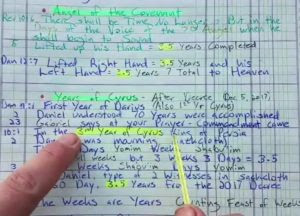 • Angel of the Covenant
Rev 10:6 There shall be Time No Longer - But in the
Days of the Voice of the 7th Angel when he
shall begin to Sound
Lifted up his Hand = 3.5 Years Completed
Dan 12:7 Lifted Right Hand = 3.5 Years and his
Left Hand = 3.5 Years 7 Total to Heaven
• Years of Cyrus - After Decree (Dec 5, 2017)
First Year of Darius (Also 1st Yr Cyrus)
2 Daniel understood 70 Years were accomplished
23 Gabriel says at your Prayer - Commandment came
10:1 In the 3rd Year of Cyrus King of Persia
2 was mourning
Days Yomim Weeks Shabu'im
weeks but 3 Weeks 3 Days = 3.5
Weeks Days Yomim
Daniel type of 2 Witnesses in Sackcloth
Day. 3.5 Years from the 2017 Decree
The Weeks are Years Counting Feast of Weeks